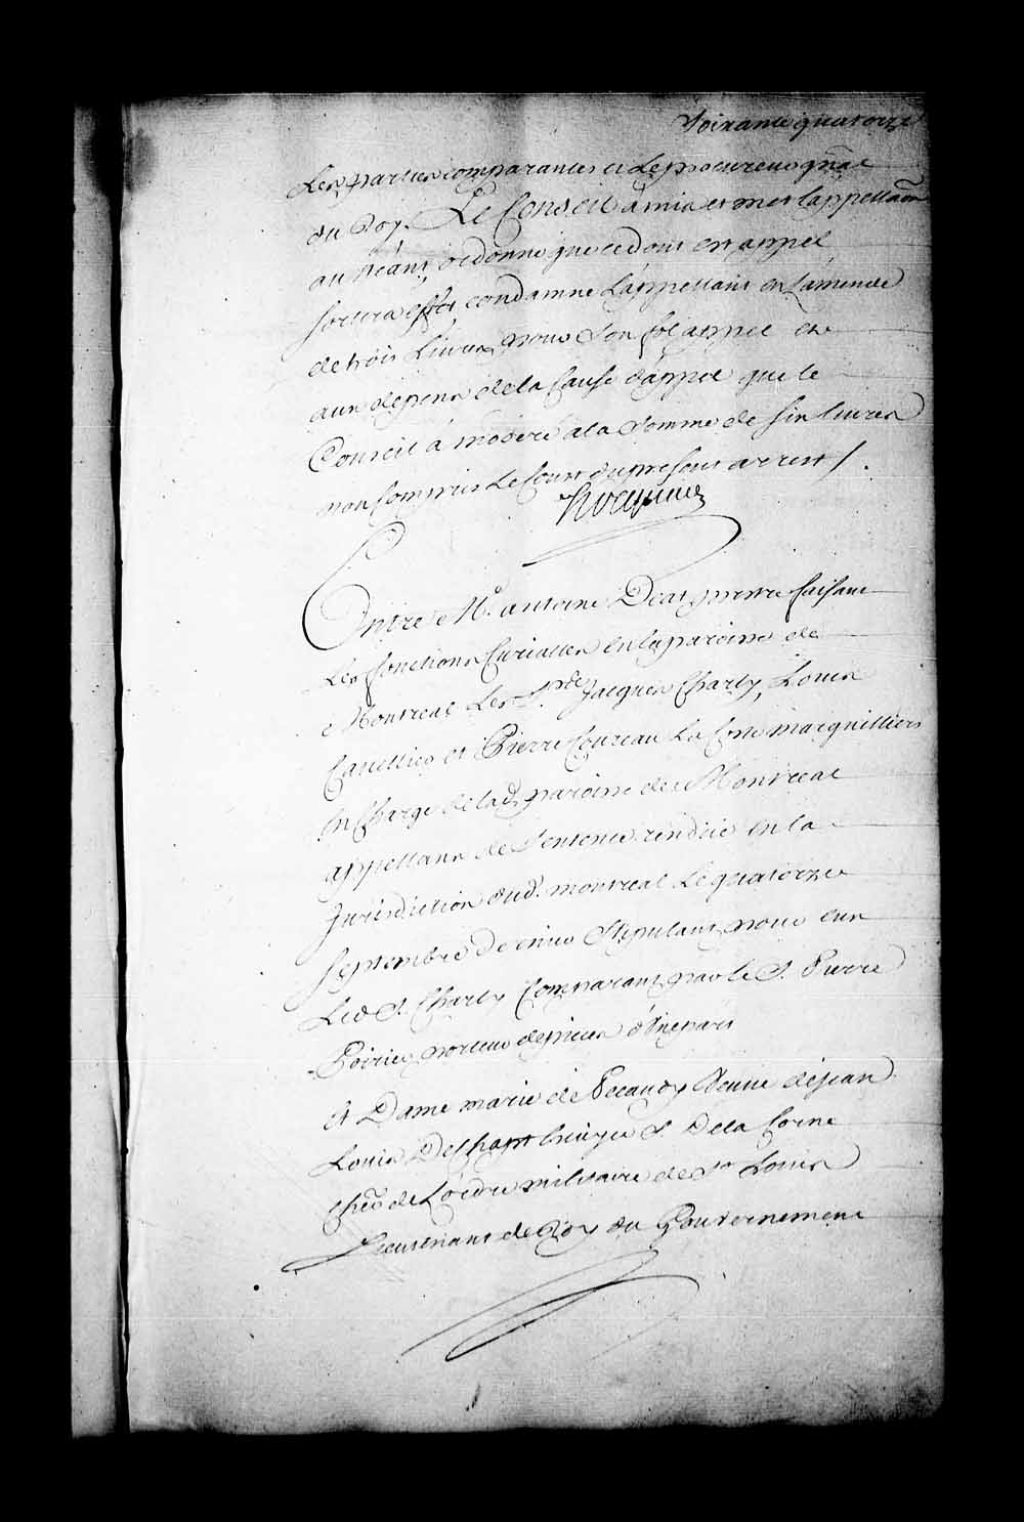 Soixante quatorze
Les parties comparantes et Le procureur gnâl
du Roy. Le Conseil a mis et met l'appellaôn
au néant, ordonne que ce dont est appel
sortira effet condamne L'appellant en L'amende
de trois Livres pour son fol appel et
aux dépens de la Cause d'appel que le
Conseil à moderé a la somme de six livres
non Compris Le Coust du present arrest /.
Hocquart
Entre Me. antoine Deat prestre faisant
Les fonctions Curialles en la paroisse de
Montreal Les Srs. Jacques Charly, Louis
et Pierre Coureau La Coste marguilliers
En Charge de lad. paroisse de Montreal
appellans de Sentence rendüe en la
Jurisdiction dud. montreal Le quatorze
septembre dernier Stipulant pour eux
Led. S. Charly Comparant par le S. Pierre
Poirier porteur de pieces d'Une part
Et Dame marie de Pecaudy Veuve de jean
Louis De Chapt Ecuyer S. De la Corne
cher. de L'ordre militaire de St. Louis
Lieutenant de Roy du Gouvernement